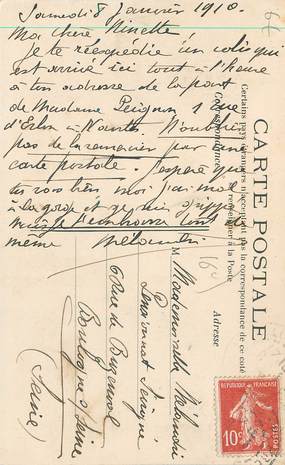 Samedi 8 Janvier 1910.
Ma chère Ninette
Je te réexpédie un colis qui
est arrivé ici tout à l'heure
à ton adresse de la part
de Madame Peignon 1 rue
d'Erlon à Nantes. N'oublie
pas de la remercier par une
carte postale. J'espère que
tu vas bien moi j'ai mal
à la gorge et je suis grippé
mais je t'embrasse tout de
même
CARTE POSTALE
Certains pays étrangers n'acceptent pas la correspondance de ce côté
se renseigner à la Poste
Correspondance
Adresse
M Mademoiselle
Pensionnat Sévigné
6 Rue de
Boulogne s/ Seine
(Seine)
REPUBLIQUE FRANÇAISE
10c
POSTES